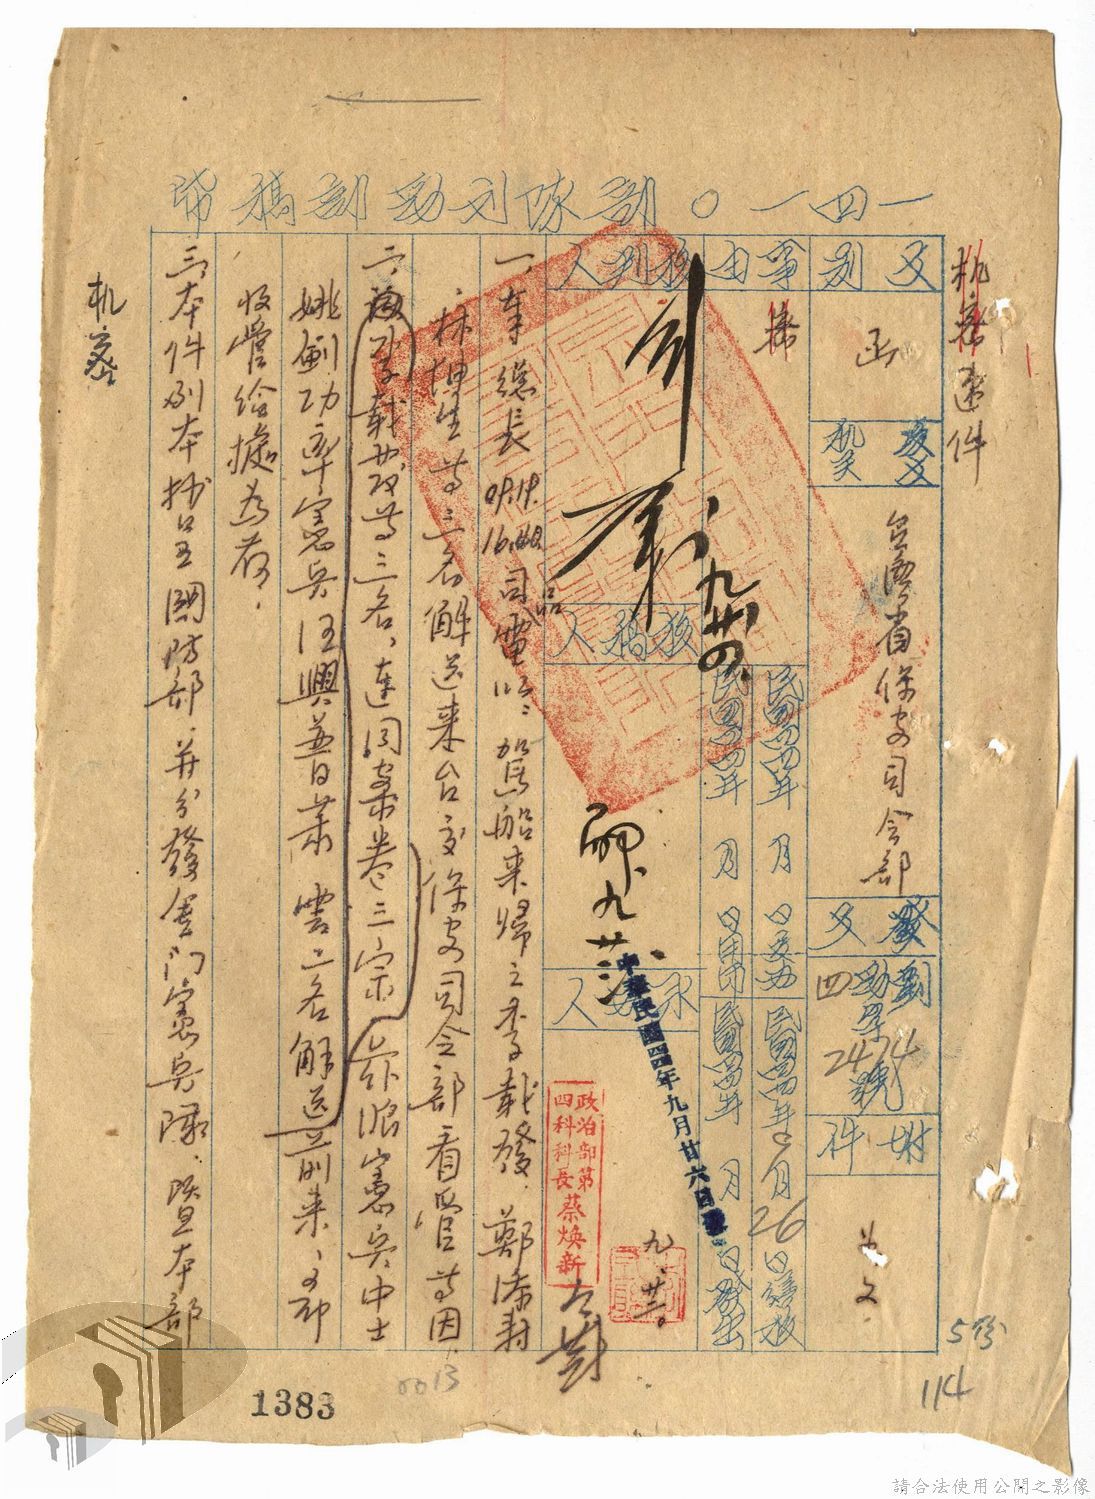 一四一〇部隊刘勁部稿牋
机密速件
文別
函
發文
机关
台灣省保安司令部
發文
劉勁字
四
2474號
附件
如文
事由
核判人
九廿四
核稿人
九廿
承办人
民國四四年 月 日交办
民國四四年 月26日繕校
民國四四年 月 日用印
民國四四年 月 日發出
中華民國四四年九月廿六日發
政治部第
四科科長蔡煥新
九.廿三.
一、奉總長09.19.
16.40.司電以：駕船来歸之李載發、鄭添財
林坤生等三名解送来台交保安司令部看管等因。
二、李載發等三名，連同案卷三宗，茲派憲兵中士
姚劍功率憲兵汪興普、蕭雲二名解送前来，即
收管給據為荷。
三、本件副本抄呈國防部，并分發金門憲兵隊，暨本部
机密
5份
114
0013
1383
請合法使用公開之影像